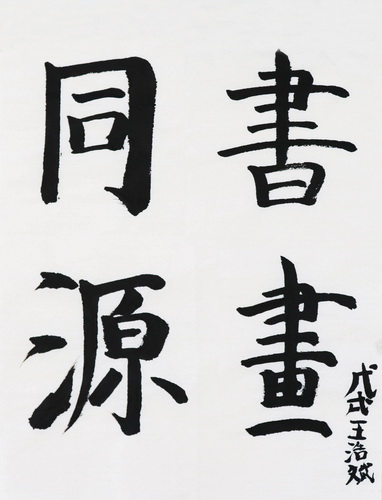 書畫
同源
戊戌王浩斌